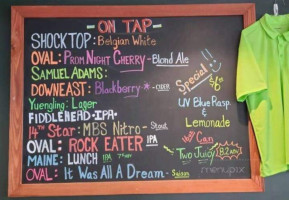 - ON TAP -
SHOCK TOP: Belgian White
OVAL: PROM NIGHT CHERRY - Blond Ale
SAMUEL ADAMS:
DOWNEAST: Blackberry - CIDER
Yuengling: Lager
FIDDLEHEAD - IPA -
14TH Star: MBS Nitro - Stout
OVAL: ROCK EATER IPA
MAINE: LUNCH IPA
OVAL: It Was All A Dream -
Special
$6
UV Blue Rasp.
&
Lemonade
Can
Two Juicy 8.2%
menupix